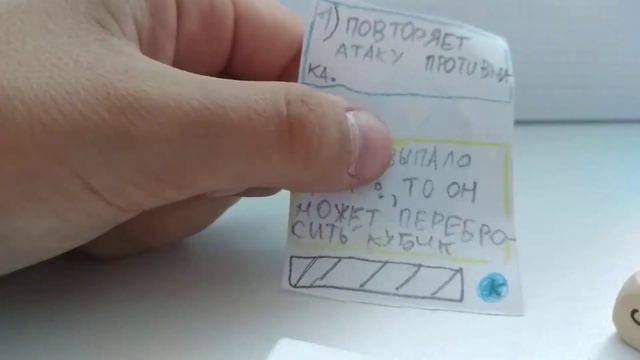 1) ПОВТОРЯЕТ
АТАКУ ПРОТИВНИ
КА.
ВЫПАЛО
, ТО ОН
МОЖЕТ ПЕРЕБРО-
СИТЬ КУБИК
К